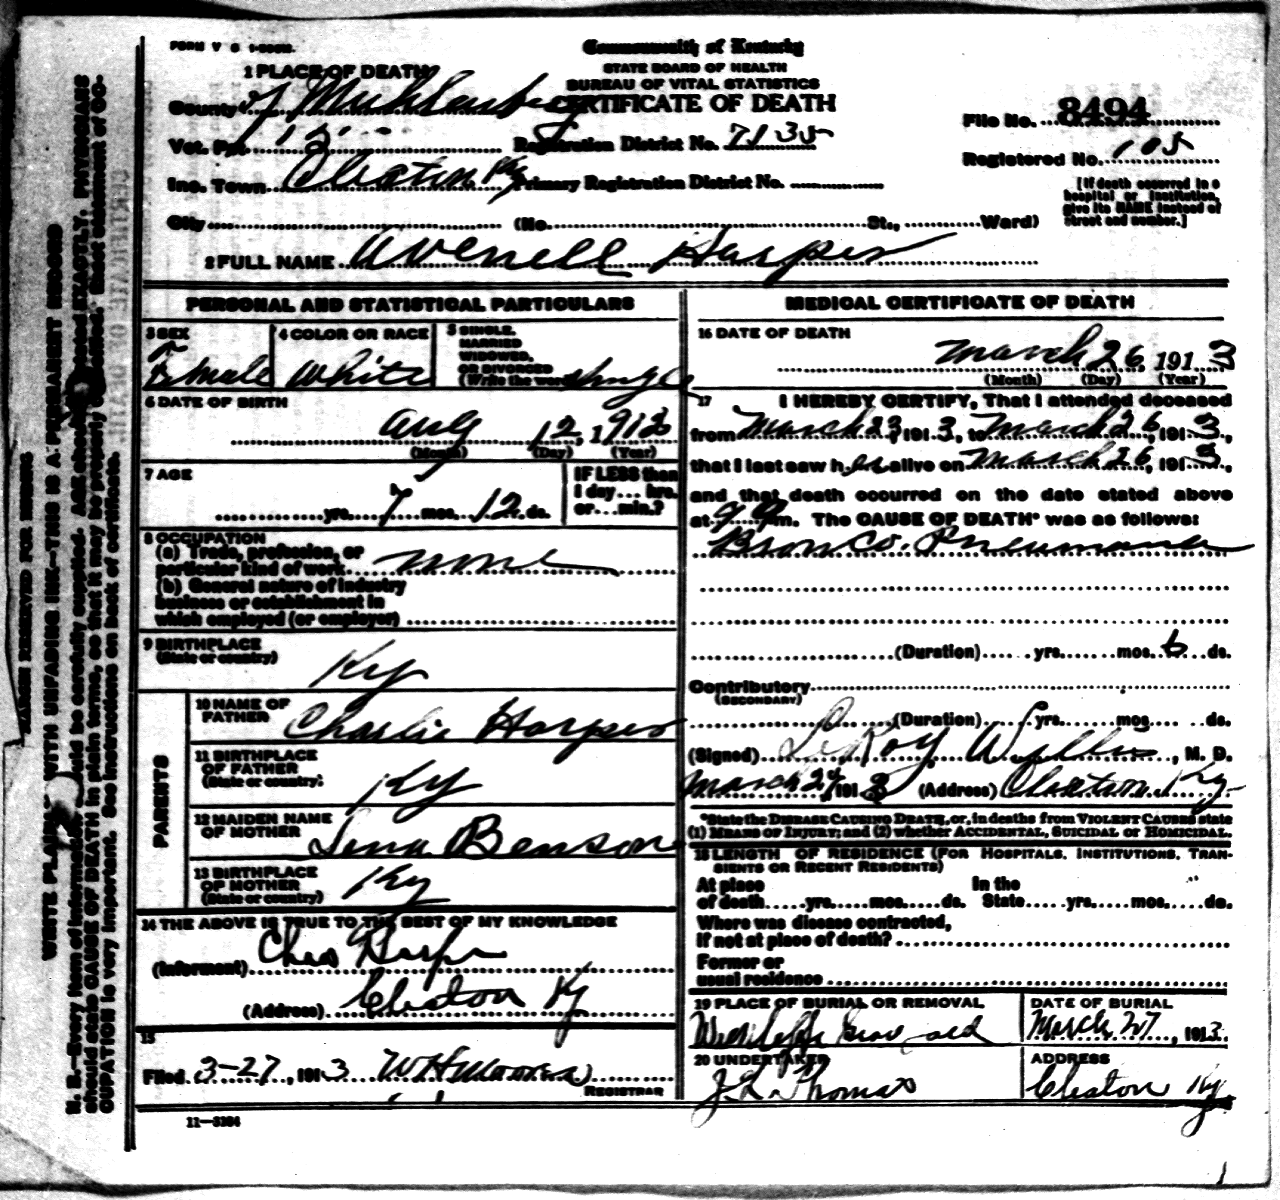 FORM V S 1-
Commonwealth of Kentucky
STATE BOARD OF HEALTH
BUREAU OF VITAL STATISTICS
CERTIFICATE OF DEATH
1 PLACE OF DEATH
County of Muhlenberg
File No. 8494
Vot. Pct. 12 Registration District No. 7135
Registered No. 105
Inc. Town Cleaton Ky Primary Registration District No.
[If death occurred in a hospital or institution, give its NAME instead of street and number.]
City (No. St., Ward)
2 FULL NAME Avenell Harper
PERSONAL AND STATISTICAL PARTICULARS
3 SEX Female
4 COLOR OR RACE White
5 SINGLE, MARRIED WIDOWED, OR DIVORCED (Write the word) Single
6 DATE OF BIRTH
Aug 12, 1912
(Month) (Day) (Year)
7 AGE
yrs. 7 mos. 12 ds.
IF LESS than 1 day... hrs. or... min.?
8 OCCUPATION
(a) Trade, profession, or particular kind of work none
(b) General nature of industry
business or establishment in
which employed (or employer)
9 BIRTHPLACE
(State or country) Ky
PARENTS
10 NAME OF FATHER Charlie Harper
11 BIRTHPLACE OF FATHER (State or country) Ky
12 MAIDEN NAME OF MOTHER Lena Benson
13 BIRTHPLACE OF MOTHER (State or country) Ky
14 THE ABOVE IS TRUE TO THE BEST OF MY KNOWLEDGE
(Informant) Chas Harper
(Address) Cleaton Ky
15
Filed 3-27, 1913 W H Moore
REGISTRAR
11—3384
MEDICAL CERTIFICATE OF DEATH
16 DATE OF DEATH
March 26, 1913
(Month) (Day) (Year)
17 I HEREBY CERTIFY, That I attended deceased
from March 23, 1913, to March 26, 1913,
that I last saw her alive on March 26, 1913,
and that death occurred on the date stated above
at 9 am. The CAUSE OF DEATH* was as follows:
Bronco. Pneumonia
(Duration) yrs. mos. 6 ds.
Contributory
(SECONDARY)
(Duration) yrs. mos. ds.
(Signed) LeRoy, M. D.
March 1913 (Address) Cleaton Ky
*State the DISEASE CAUSING DEATH, or, in deaths from VIOLENT CAUSES state
(1) MEANS OF INJURY; and (2) whether ACCIDENTAL, SUICIDAL or HOMICIDAL.
18 LENGTH OF RESIDENCE (FOR HOSPITALS, INSTITUTIONS, TRANSIENTS OR RECENT RESIDENTS)
At place of death yrs. mos. ds. In the State yrs. mos. ds.
Where was disease contracted,
if not at place of death?
Former or
usual residence
19 PLACE OF BURIAL OR REMOVAL
DATE OF BURIAL
March 27, 1913
20 UNDERTAKER
J. L. Thomas
ADDRESS
Cleaton Ky
MARGIN RESERVED FOR BINDING
WRITE PLAINLY WITH UNFADING INK—THIS IS A PERMANENT RECORD
N. B.—Every item of information should be carefully supplied. AGE should be stated EXACTLY. PHYSICIANS
should state CAUSE OF DEATH in plain terms, so that it may be properly classified. Exact statement of OC-
CUPATION is very important. See instructions on back of certificate.